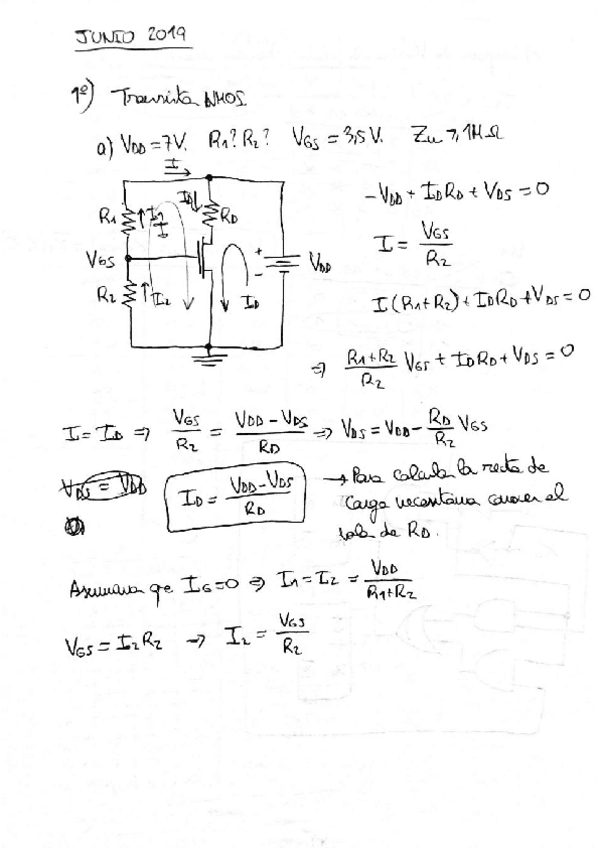 JUNIO 2019
1º) Transistor NMOS.
a) VDD = 7V. R1? R2? VGS = 3,5V. Zin ≥ 1MΩ
I
ID
R1
I1
I
RD
VGS
R2
I2
ID
+
-
VDD
-VDD + IDRD + VDS = 0
I = VGS / R2
I(R1+R2) + IDRD + VDS = 0
⇒ (R1+R2) / R2 VGS + IDRD + VDS = 0
I = ID ⇒ VGS / R2 = (VDD - VDS) / RD ⇒ VDS = VDD - RD / R2 VGS
VDS = VDD
ID = (VDD - VDS) / RD
→ Para calcular la recta de
carga necesitamos conocer el
valor de RD.
Asumimos que IG = 0 ⇒ I1 = I2 = VDD / (R1+R2)
VGS = I2R2 → I2 = VGS / R2